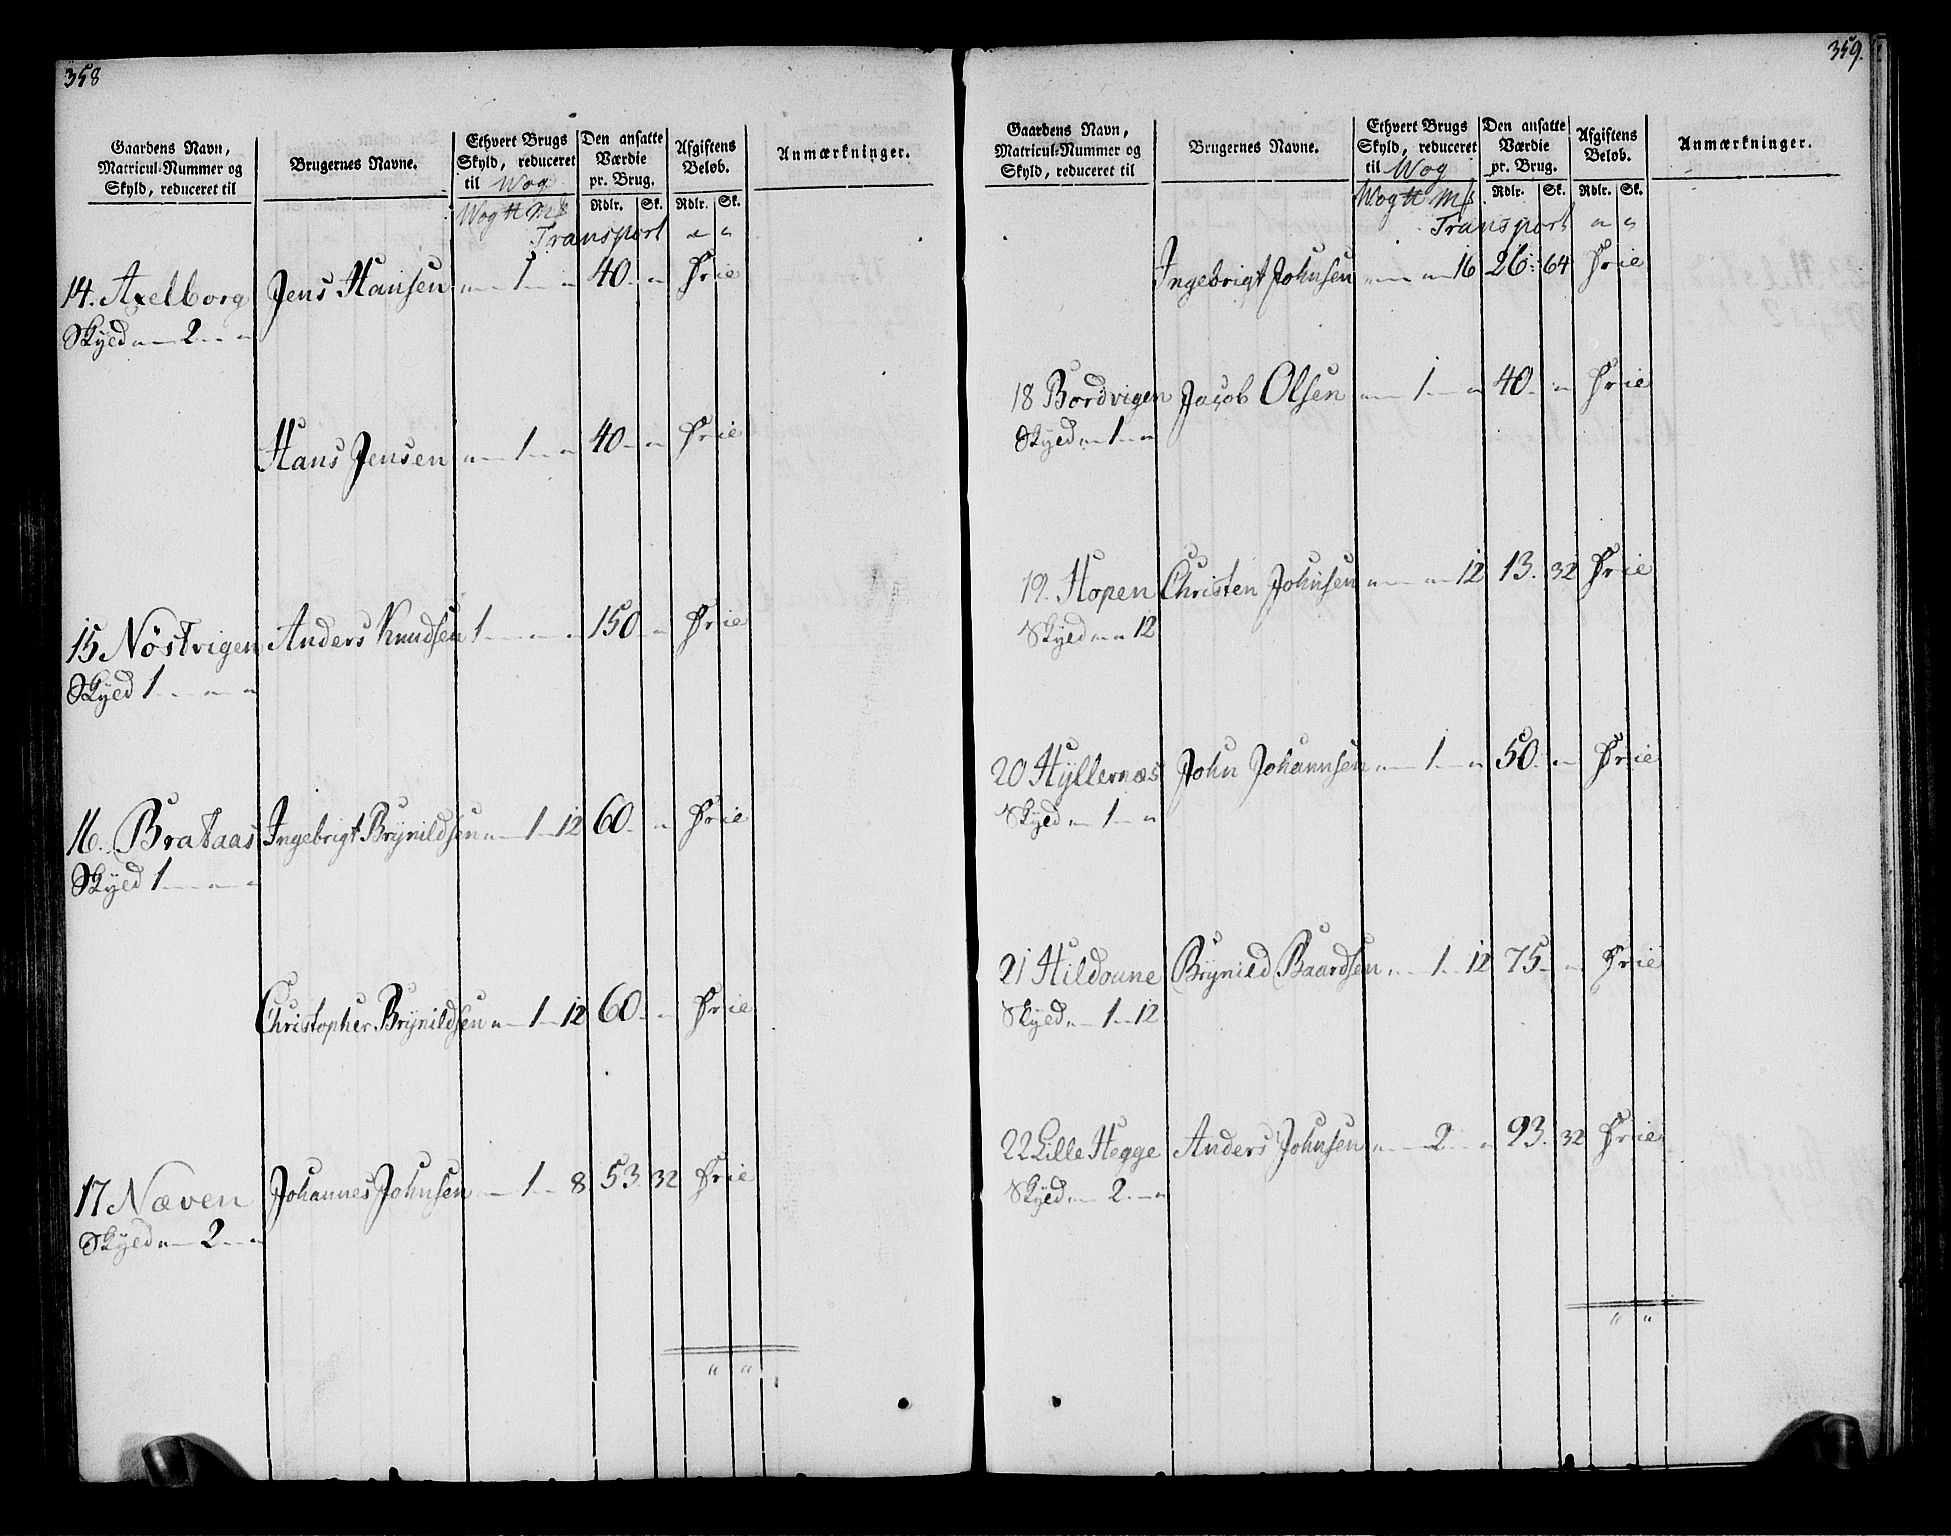 358
Gaardens Navn, Matricul-Nummer og Skyld, reduceret til | Brugernes Navne. | Ethvert Brugs Skyld, reduceret til Wog | Den ansatte Værdie pr. Brug. | Afgiftens Beløb. | Anmærkninger.
Wog ℔ Mk | Rdlr. | Sk. | Rdlr. | Sk.
Transport " "
14. Axelborg Jens Hansen " 1 " 40 " Frie
Skyld " 2 "
Hans Jensen " 1 " 40 " Frie
15 Nöstvigen Anders Knudsen 1 " " 150 " Frie
Skyld 1 " "
16. Brataas Ingebrigt Brynildsen " 1 12 60 " Frie
Skyld 1 " "
Christopher Brynildsen " 1 12 60 " Frie
17 Næven Johannes Johnsen " 1 8 53. 32 Frie
Skyld " 2 "
" "
359.
Gaardens Navn, Matricul-Nummer og Skyld, reduceret til | Brugernes Navne. | Ethvert Brugs Skyld, reduceret til Wog | Den ansatte Værdie pr. Brug. | Afgiftens Beløb. | Anmærkninger.
Wog ℔ Mk | Rdlr. | Sk. | Rdlr. | Sk.
Transport " "
Ingebrigt Johnsen " " 16 26 64 Frie
18 Bordvigen Jacob Olsen " 1 " 40 " Frie
Skyld " 1 "
19. Hopen Christen Johnsen " " 12 13. 32 Frie
Skyld " " 12
20 Hyllernæs John Johannsen " 1 " 50 " Frie
Skyld " 1 "
21 Hildoune Brynild Baardsen " 1 12 75 " Frie
Skyld " 1 12
22 Lille Hegge Anders Johnsen " 2 " 93. 32 Frie
Skyld " 2 "
" "